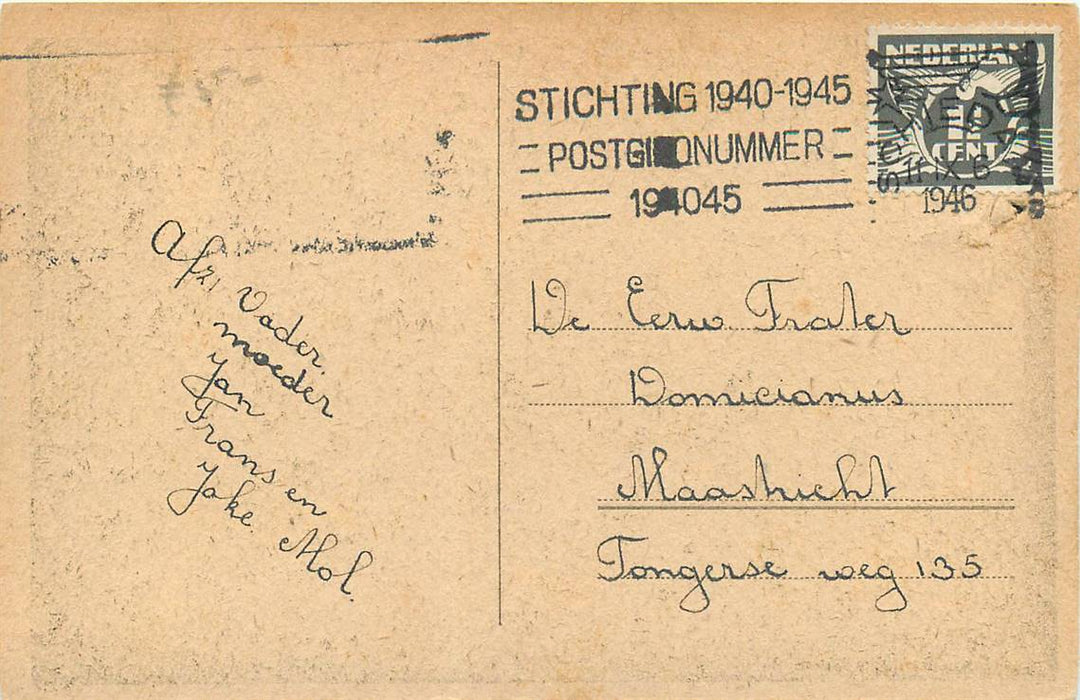 STICHTING 1940-1945
POSTGIRONUMMER
194045
NEDERLAND
CENT
SCHIEDAM
11 IX 6
1946
Afz. Vader.
moeder
Jan
Frans en
Joke. Mol.
De Eerw Frater
Domicianus
Maastricht
Tongerse weg 135